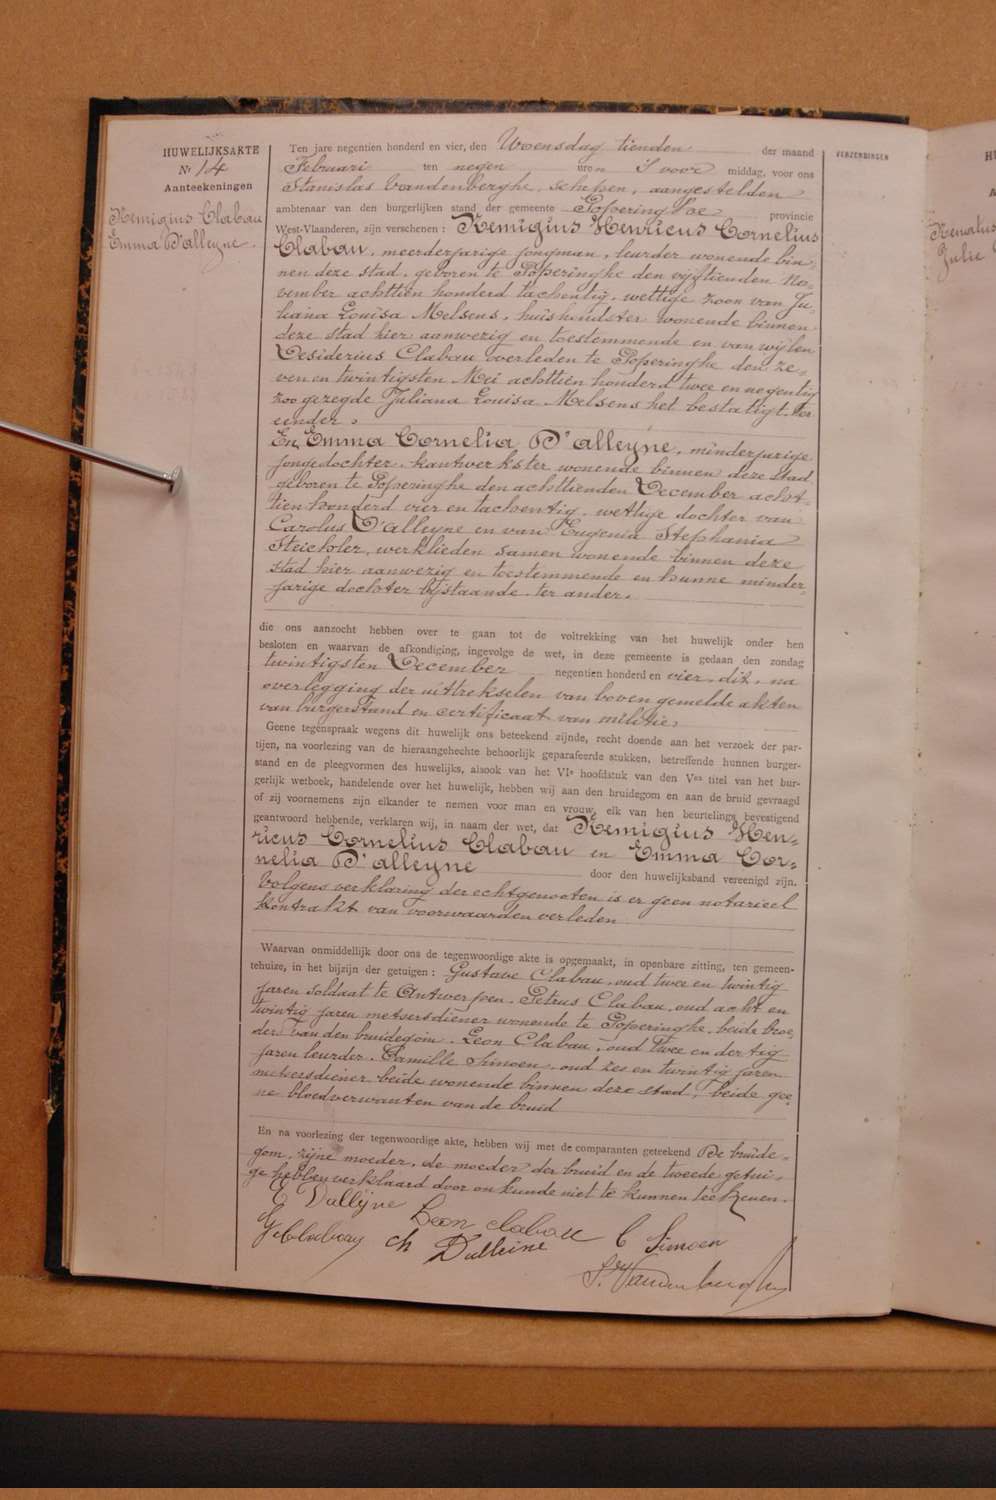 HUWELIJKSAKTE
Nr 14
Aanteekeningen
Remigius Clabau
&
Emma D'alleyne.
VERZENDINGEN
Ten jare negentien honderd en vier, den Woensdag tienden der maand
Februari ten negen uren 's voor middag, voor ons
Stanislas Vandenberghe, schepen, aangestelden
ambtenaar van den burgerlijken stand der gemeente Poperinghe provincie
West-Vlaanderen, zijn verschenen : Remigius Henricus Cornelius
Clabau, meerderjarige jongman, leurder wonende bin-
nen deze stad, geboren te Poperinghe den vijftienden No-
vember achttien honderd tachentig, wettige zoon van Ju-
liana Louisa Melsens, huishoudster wonende binnen
deze stad hier aanwezig en toestemmende en van wijlen
Desiderius Clabau overleden te Poperinghe den ze-
ven en twintigsten Mei achttien honderd twee en negentig
zoo gezegde Juliana Louisa Melsens het bestatigt. ter
eender.
En Emma Cornelia D'alleyne, minderjarige
jongedochter, kantwerkster wonende binnen deze stad
geboren te Poperinghe den achttienden December acht-
tien honderd vier en tachentig, wettige dochter van
Carolus D'alleyne en van Eugenia Stephania
Steicholer, werklieden samen wonende binnen deze
stad hier aanwezig en toestemmende en hunne minder-
jarige dochter bijstaande. ter ander.
die ons aanzocht hebben over te gaan tot de voltrekking van het huwelijk onder hen
besloten en waarvan de afkondiging, ingevolge de wet, in deze gemeente is gedaan den zondag
twintigsten December negentien honderd en vier, dit, na
overlegging der uittrekselen van bovengemelde akten
van burgerstand en certificaat van militie.
Geene tegenspraak wegens dit huwelijk ons beteekend zijnde, recht doende aan het verzoek der par-
tijen, na voorlezing van de hieraangehechte behoorlijk geparafeerde stukken, betreffende hunnen burger-
stand en de pleegvormen des huwelijks, alsook van het VIe hoofdstuk van den Ven titel van het bur-
gerlijk wetboek, handelende over het huwelijk, hebben wij aan den bruidegom en aan de bruid gevraagd
of zij voornemens zijn elkander te nemen voor man en vrouw, elk van hen beurtelings bevestigend
geantwoord hebbende, verklaren wij, in naam der wet, dat Remigius Hen-
ricus Cornelius Clabau en Emma Cor-
nelia D'alleyne door den huwelijksband vereenigd zijn.
Volgens verklaring der echtgenooten is er geen notarieel
kontrakt van voorwaarden verleden
Waarvan onmiddellijk door ons de tegenwoordige akte is opgemaakt, in openbare zitting, ten gemeen-
tehuize, in het bijzijn der getuigen : Gustave Clabau, oud twee en twintig
jaren soldaat te Antwerpen, Petrus Clabau, oud acht en
twintig jaren metsersdiener wonende te Poperinghe, beide broe-
der van den bruidegom, Leon Clabau, oud twee en dertig
jaren leurder, Camille Simoen, oud zes en twintig jaren
metsersdiener beide wonende binnen deze stad, beide gee-
ne bloedverwanten van de bruid
En na voorlezing der tegenwoordige akte, hebben wij met de comparanten geteekend De bruide-
gom, zijne moeder, de moeder der bruid en de tweede getui-
ge hebben verklaard door onkunde niet te kunnen teekenen.
E Dallijne Leon clabau C Simoen
G Clabau ch Dalleine
S. Vandenberghe